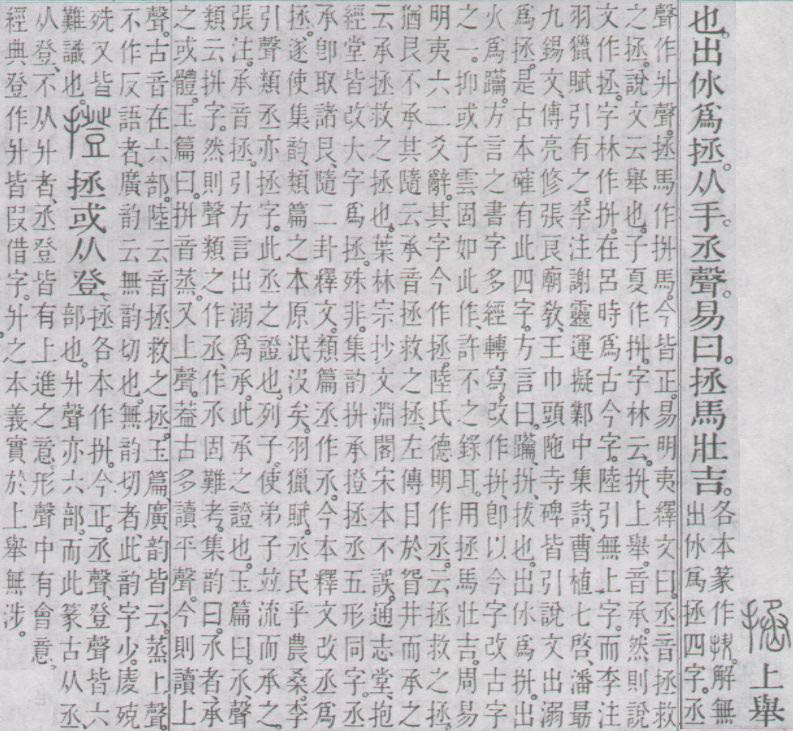 上舉
也。出㲻爲拯。从手丞聲。易曰。拯馬壯吉。各本篆作抍。解無
出㲻爲拯四字。丞
聲作升聲。拯馬作抍馬。今皆正。易明夷釋文曰。丞音拯救
之拯。說文云舉也。子夏作抍。字林云。抍、上舉。音承。然則說
文作拯。字林作抍。在呂時爲古今字。陸引無上字。而李注
羽獵賦引有之。李注謝靈運擬鄴中集詩、曹植七啓、潘勗
九錫文、傅亮修張良廟敎、王巾頭陁寺碑皆引說文出溺
爲拯。是古本確有此四字。方言曰。躡、抍、拔也。出㲻爲抍。出
火爲躡。方言之書字多經轉寫。改作抍。卽以今字改古字
之一。抑或子雲固如此作、許不之錄耳。用拯馬壯吉。周易
明夷六二爻辭。其字今作拯。陸氏德明作丞。云拯救之拯。
猶艮不承其隨云承音拯救之拯、左傳目於眢井而承之
云承拯救之拯也。葉林宗抄文淵閣宋本不誤。通志堂、抱
經堂皆改大字爲拯。殊非。集韵抍承撜拯丞五形同字。丞
承卽取諸艮、隨二卦釋文。類篇丞作承。今本釋文改丞爲
拯。遂使集韵、類篇之本原泯没矣。羽獵賦。丞民乎農桑。李
引聲類丞亦拯字。此丞之證也。列子。使弟子竝流而承之。
張注。承音拯。引方言出溺爲承。此承之證也。玉篇曰。氶、聲
類云抍字。然則聲類之作丞、作氶固難考。集韵曰。氶者、承
之或體。玉篇曰。抍音蒸。又上聲。葢古多讀平聲。今則讀上
聲。古音在六部。陸云音拯救之拯。玉篇、廣韵皆云。蒸上聲。
不作反語者、廣韵云無韵切也。無韵切者、此韵字少。庱殑
殑又皆
難識也。
撜 拯或从登。
拯各本作抍。今正。丞聲、登聲皆六
部也。升聲亦六部。而此篆古从丞、
从登、不从升者、丞登皆有上進之意。形聲中有會意。
經典登作升皆叚借字。升之本義實於上舉無涉。